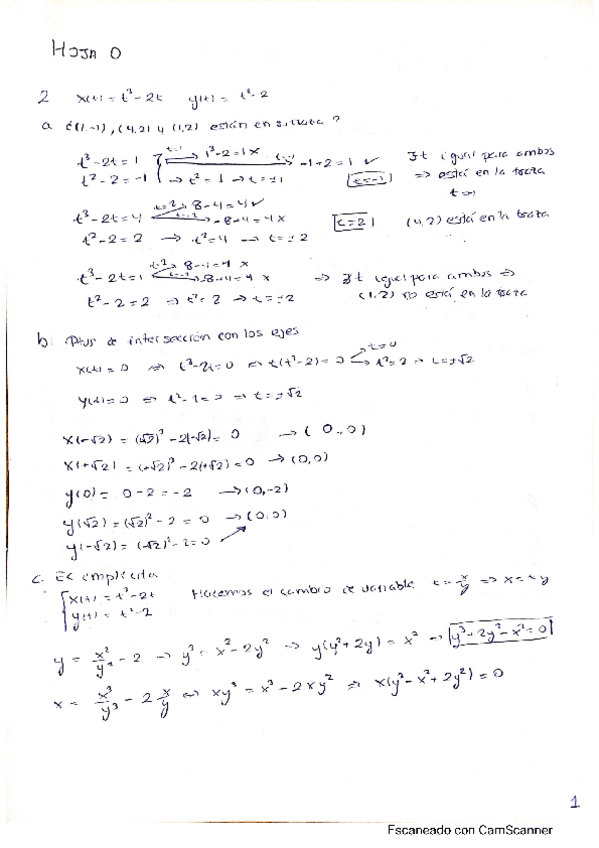 HOJA 0
2 x(t) = t³-2t y(t) = t²-2
a ¿(1,-1), (4,2) y (1,2) están en su traza?
t³-2t=1 1³-2=1 x -1+2=1 ✓ ∃t igual para ambos
t²-2=-1 → t²=1 → t=±1 t=-1 ⇒ está en la traza
t³-2t=4 t=2 8-4=4 ✓ -8+4=4 x t=2 (4,2) está en la traza
t²-2=2 → t²=4 → t=±2
t³-2t=1 8-4=4 x -8+4=4 x ⇒ ∄t igual para ambos ⇒
t²-2=2 → t²=2 → t=±2 (1,2) no está en la traza
b. Ptos de intersección con los ejes
x(t)=0 ⇔ t³-2t=0 ⇔ t(t²-2)=0 t=0 t²=2 → t=±√2
y(t)=0 ⇔ t²-2=0 ⇔ t=±√2
x(-√2) = (-√2)³-2(-√2)= 0 → (0,0)
x(+√2) = (+√2)³-2(+√2)=0 → (0,0)
y(0)= 0-2=-2 → (0,-2)
y(√2)=(√2)²-2=0 → (0,0)
y(-√2)=(-√2)²-2=0
c. Ec implícita
x(t)=t³-2t Hacemos el cambio de variable t=x/y ⇒ x=ty
y(t)=t²-2
y = x²/y² - 2 → y³=x²-2y² ⇒ y(y²+2y)=x² → y³+2y²-x²=0
x = x³/y³ - 2 x/y ⇔ xy³=x³-2xy² ⇒ x(y³-x²+2y²)=0
1
Escaneado con CamScanner